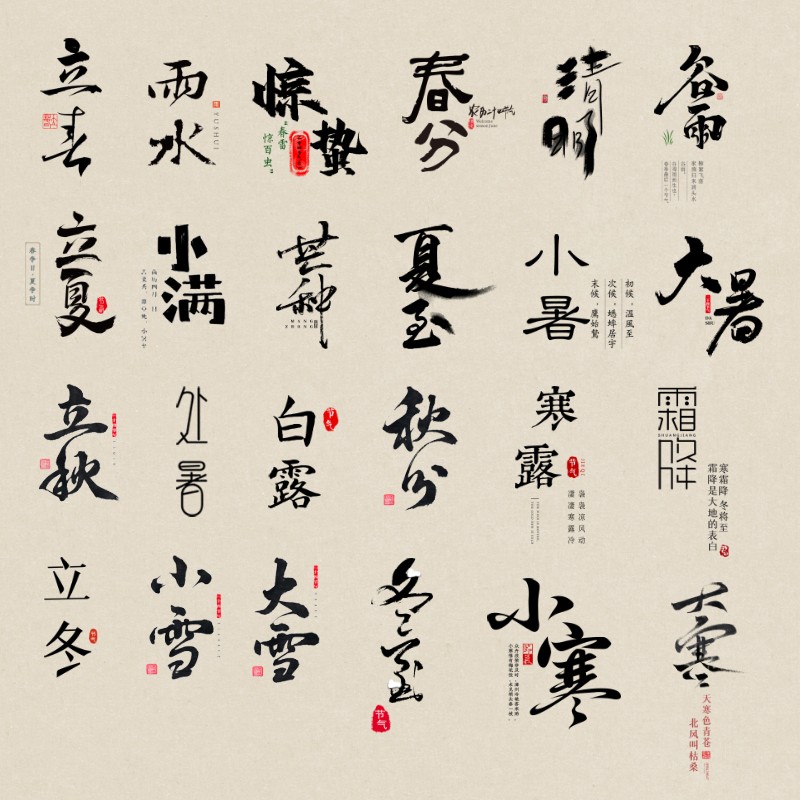 立春
雨水
YUSHUI
惊蛰
春雷
惊百虫
春分
清明
谷雨
立夏
春争日·夏争时
小满
芒种
MANG
ZHONG
夏至
小暑
初候,温風至
次候,蟋蟀居宇
末候,鷹始鷙
大暑
立秋
处暑
白露
节气
秋分
寒露
节气
袅袅凉风动
凄凄寒露冷
霜降
SHUANGJIANG
寒霜降 冬将至
霜降是大地的表白
立冬
小雪
大雪
冬至
节气
小寒
大寒
天寒色青苍
北风叫枯桑